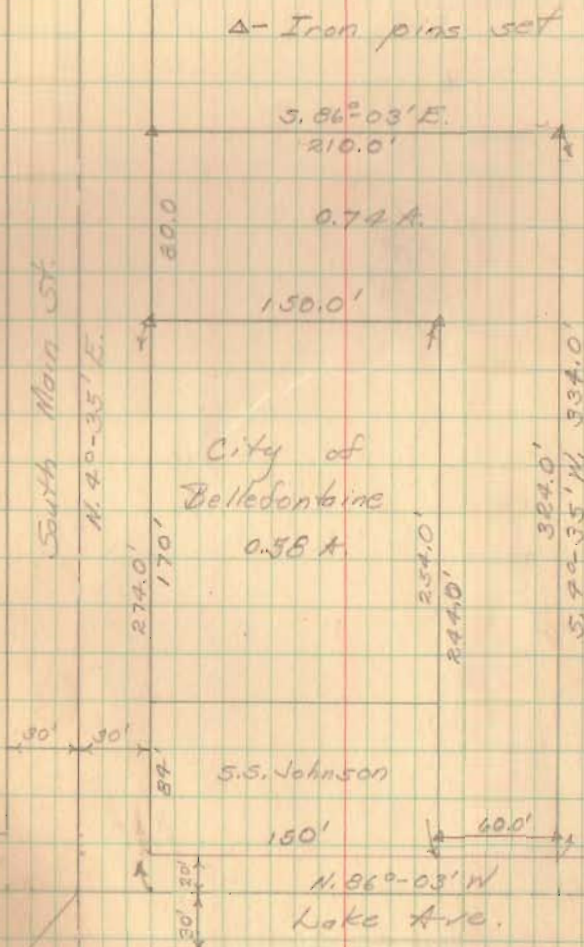 Δ- Iron pins set
S. 86°-03' E.
210.0'
80.0
0.74 A.
150.0'
South Main St.
N. 4°-35' E.
City of
Bellefontaine
0.58 A.
274.0'
170'
254.0'
244.0'
324.0'
S. 4°-35' W. 334.0'
30'
30'
84'
S.S. Johnson
150'
60.0'
20'
N. 86°-03' W
30'
Lake Ave.